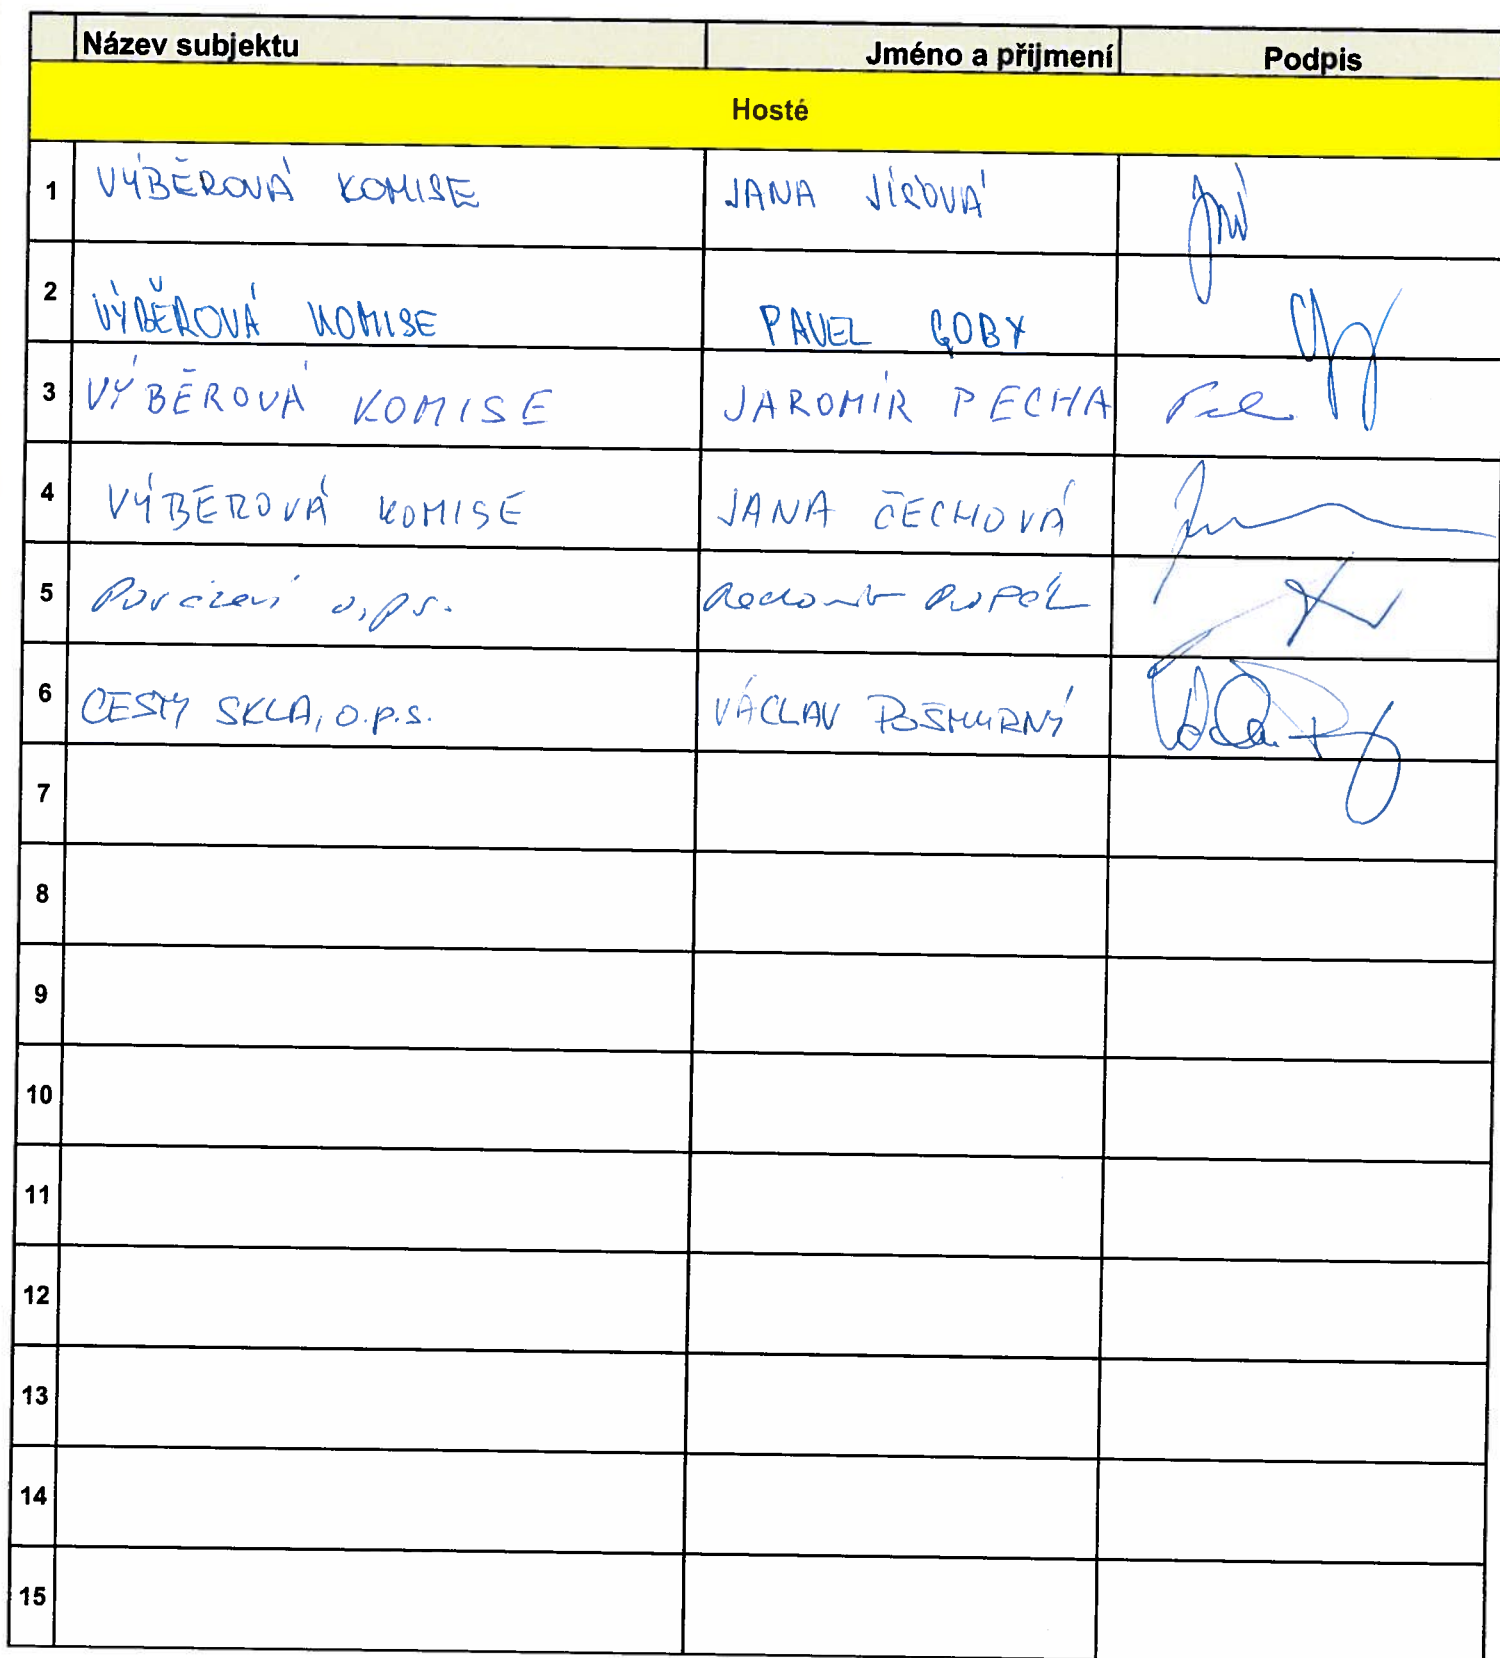 Název subjektu Jméno a přijmení Podpis
Hosté
1 VÝBĚROVÁ KOMISE JANA JÍROVÁ
2 VÝBĚROVÁ KOMISE PAVEL GOBY
3 VÝBĚROVÁ KOMISE JAROMÍR PECHA
4 VÝBĚROVÁ KOMISE JANA ČECHOVÁ
5 o.p.s.
6 CESTY SKLA, O.P.S. VÁCLAV POŠMURNÝ
7
8
9
10
11
12
13
14
15